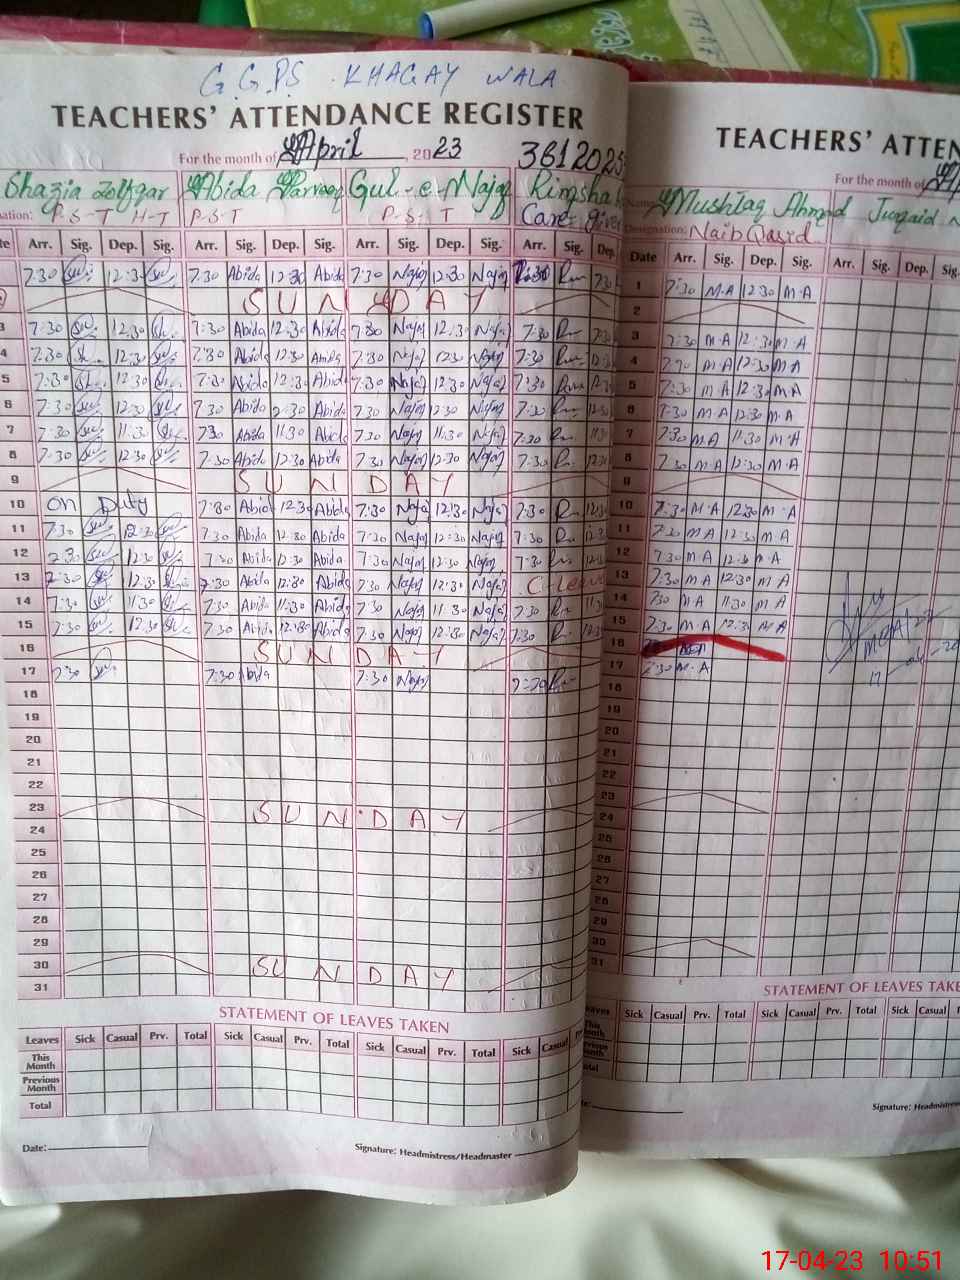 G.G.P.S KHAGAY WALA
TEACHERS' ATTENDANCE REGISTER
For the month of April, 2023
3612025
Shazia Zolfqar Abida Parveen Gul-e-Najaf
P-S-T H-T P-S-T P-S-T Care-giver
Arr. Sig. Dep. Sig. Arr. Sig. Dep. Sig. Arr. Sig. Dep. Sig. Arr. Sig. Dep.
7:30 12:30 7:30 Abida 12:30 Abida 7:30 Najaf 12:30 Najaf 7:30
SUNDAY
3 7:30 12:30 7:30 Abida 12:30 Abida 7:30 Najaf 12:30 Najaf 7:30
4 7:30 12:30 7:30 Abida 12:30 Abida 7:30 Najaf 12:30 Najaf 7:30
5 7:30 12:30 7:30 Abida 12:30 Abida 7:30 Najaf 12:30 Najaf 7:30
6 7:30 12:30 7:30 Abida 12:30 Abida 7:30 Najaf 12:30 Najaf 7:30
7 7:30 11:30 7:30 Abida 11:30 Abida 7:30 Najaf 11:30 Najaf 7:30
8 7:30 12:30 7:30 Abida 12:30 Abida 7:30 Najaf 12:30 Najaf 7:30
9 SUNDAY
10 On Duty 7:30 Abida 12:30 Abida 7:30 Najaf 12:30 Najaf 7:30
11 7:30 12:30 7:30 Abida 12:30 Abida 7:30 Najaf 12:30 Najaf 7:30
12 7:30 12:30 7:30 Abida 12:30 Abida 7:30 Najaf 12:30 Najaf 7:30
13 7:30 12:30 7:30 Abida 12:30 Abida 7:30 Najaf 12:30 Najaf C-Leave
14 7:30 11:30 7:30 Abida 11:30 Abida 7:30 Najaf 11:30 Najaf 7:30
15 7:30 12:30 7:30 Abida 12:30 Abida 7:30 Najaf 12:30 Najaf 7:30
16 SUNDAY
17 7:30 7:30 Abida 7:30 Najaf 7:30
18
19
20
21
22
23 SUNDAY
24
25
26
27
28
29
30 SUNDAY
31
STATEMENT OF LEAVES TAKEN
Leaves Sick Casual Prv. Total Sick Casual Prv. Total Sick Casual Prv. Total Sick Casual
This Month
Previous Month
Total
Date:
Signature: Headmistress/Headmaster
TEACHERS' ATTEN
For the month of
Name: Mushtaq Ahmad Junaid
Designation: Naib Qasid
Date Arr. Sig. Dep. Sig. Arr. Sig. Dep. Sig.
1 7:30 M.A 12:30 M.A
2
3 7:30 M.A 12:30 M.A
4 7:30 M.A 12:30 M.A
5 7:30 M.A 12:30 M.A
6 7:30 M.A 12:30 M.A
7 7:30 M.A 11:30 M.A
8 7:30 M.A 12:30 M.A
9
10 7:30 M.A 12:30 M.A
11 7:30 M.A 12:30 M.A
12 7:30 M.A 12:30 M.A
13 7:30 M.A 12:30 M.A
14 7:30 M.A 11:30 M.A
15 7:30 M.A 12:30 M.A
16
17 7:30 M.A
18
19
20
21
22
23
24
25
26
27
28
29
30
31
STATEMENT OF LEAVES TAKE
Leaves Sick Casual Prv. Total Sick Casual Prv. Total Sick
Signature: Headmistress
17-04-23 10:51